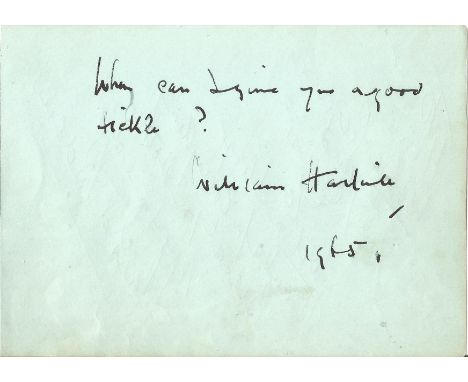 When can I give you a good
tickle?
William Hartnell
1965.